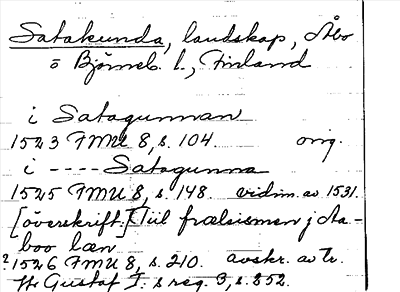 Satakunda, landskap, Åbo
o Björneb. l., Finland
i Satagunnan
1523 FMU 8, s. 104. orig.
i ---- Satagunna
1525 FMU 8, s. 148. vidim. av 1531.
[överskrift:] Til frælsismen j Aa-
boo læn
? 1526 FMU 8, s. 210. avskr. av tr.
Gustaf I:s reg. 3, s. 352.